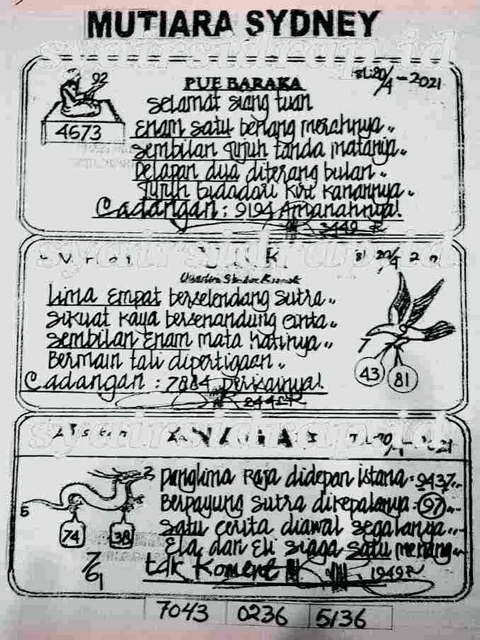 MUTIARA SYDNEY
92
4673
PUE BARAKA
20/4-2021
Selamat siang tuan
Enam satu berlang merahnya..
Sembilan Tujuh tanda matanya..
Delapan dua diterang bulan..
Tujuh bidadari kiri kanannya..
Cadangan: 9194 Amanahnya!
3449 R
20/4
Lima Empat berselendang sutra..
Sikuat kaya bersenandung cinta..
Sembilan Enam mata hatinya..
Bermain tali dipertigaan..
Cadangan: 7884
43
81
20/4-2021
Panglima Raja didepan istana. 9437..
Berpayung sutra dikepalanya. 97..
satu cerita diawal segalanya..
Ela dan Eli siaga satu menang..
tdk Koment
1949 R
5
74
38
7043 0236 5136